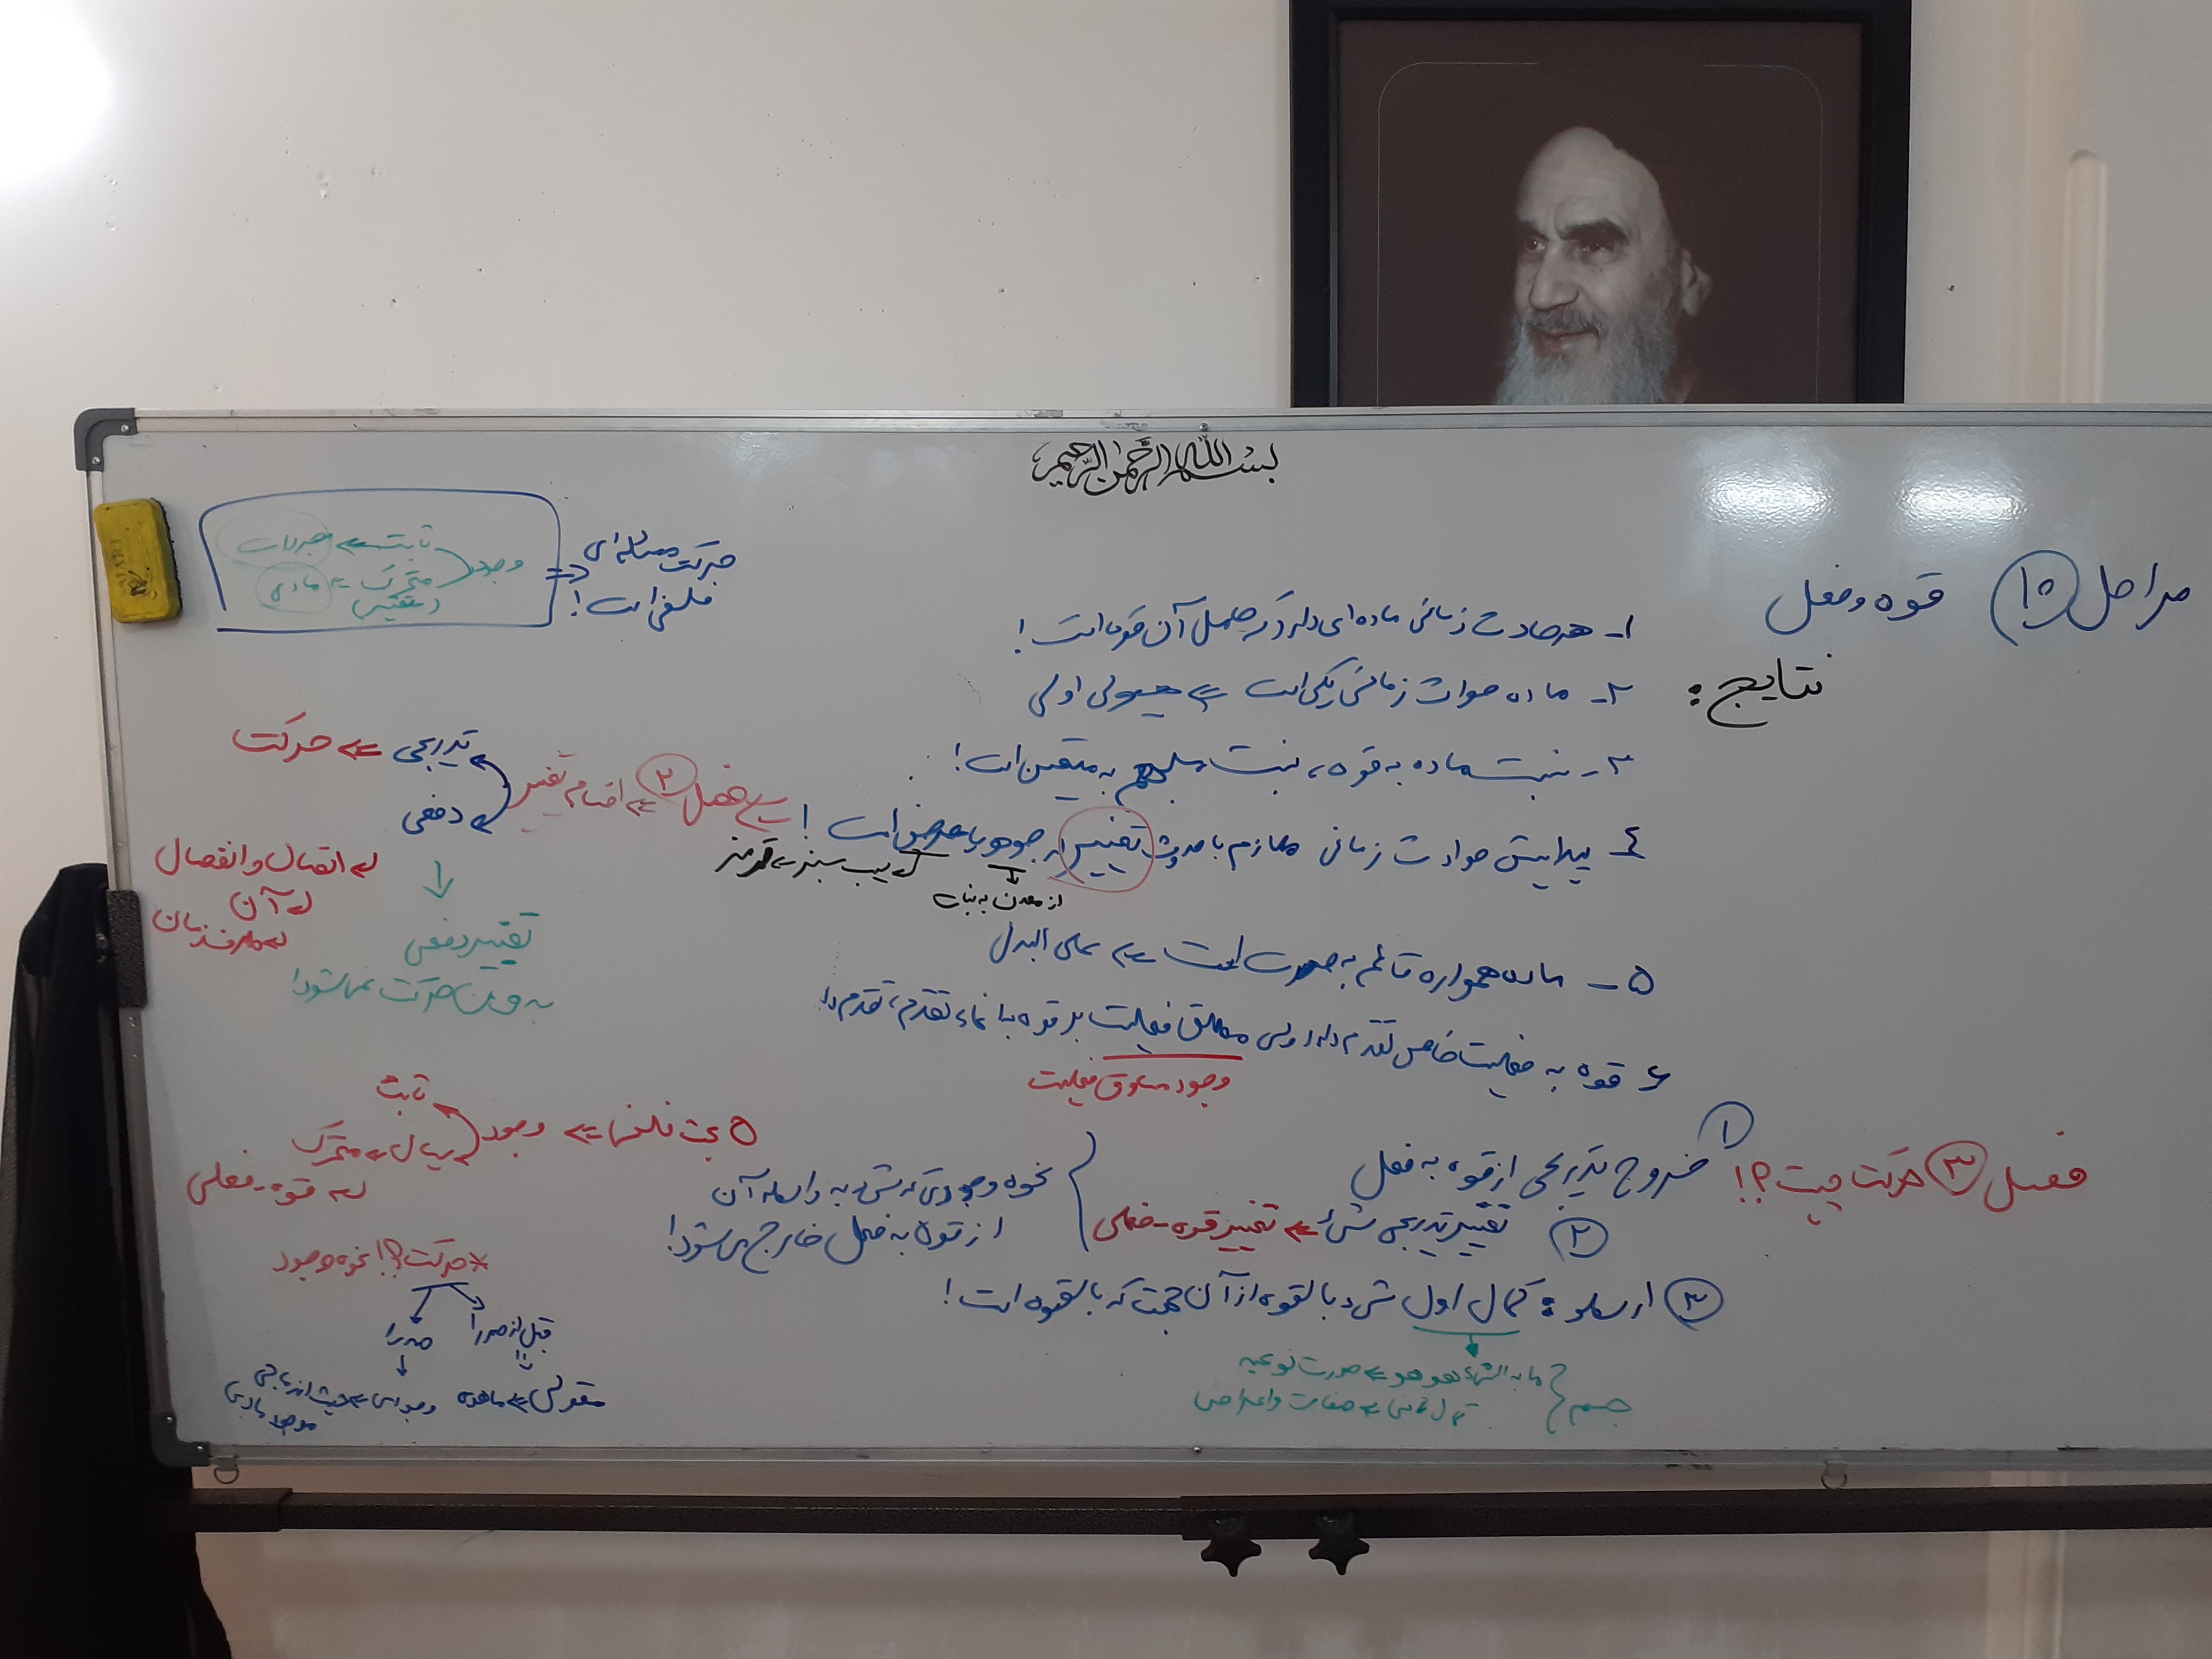 بسم الله الرحمن الرحیم
مراحل ۱۰ قوه و فعل
نتایج:
۱- هر حادث زمانی ماده‌ای دارد که حامل آن قوه است!
۲- ماده حوادث زمانی یکی است ⇐ هیولی اولی
۳- نسبت ماده به قوه، نسبت جسم مبهم به متعین است!
٤- پیدایش حوادث زمانی ملازم با حدوث تغییر در جوهر یا عرض است!
از معدن به نبات
سیب سبز ← قرمز
۵- ماده همواره قائم به صورت است ⇐ علی البدل
۶ قوه به فعلیت خاص تقدم دارد ولی مطلق فعلیت بر قوه با انحاء تقدم، تقدم دارد
وجود مساوق فعلیت
فصل ۳ حرکت چیست؟!
۱ خروج تدریجی از قوه به فعل
۲ تغییر تدریجی شیء ⇐ تغییر قوه-فعلی
نحوه وجودی که شیء به واسطه آن
از قوه به فعل خارج می‌شود!
۳ ارسطو: کمال اول شیء بالقوه از آن جهت که بالقوه است!
جسم
ما به الشیء هو هو ⇐ صورت نوعیه
کمال ثانی ⇐ صفات و اعراض
حرکت مسئله‌ای
فلسفی است!
وجود
ثابت ⇐ مجردات
متحرک ⇐ مادی
(متغیر)
فصل ۲ ⇐ اقسام تغییر
تدریجی ⇐ حرکت
دفعی
اتصال و انفصال
آن
طرف زمان
تغییر دفعی
بدون حرکت نمی‌شود!
بحث فلسفی ⇐ وجود
ثابت
سیال ⇐ متحرک
قوه-فعلی
* حرکت؟! نحوه وجود
قبل از صدرا
صدرا
مقولی ⇐ ماهوی
وجودی ⇐ حیث
موجود مادی